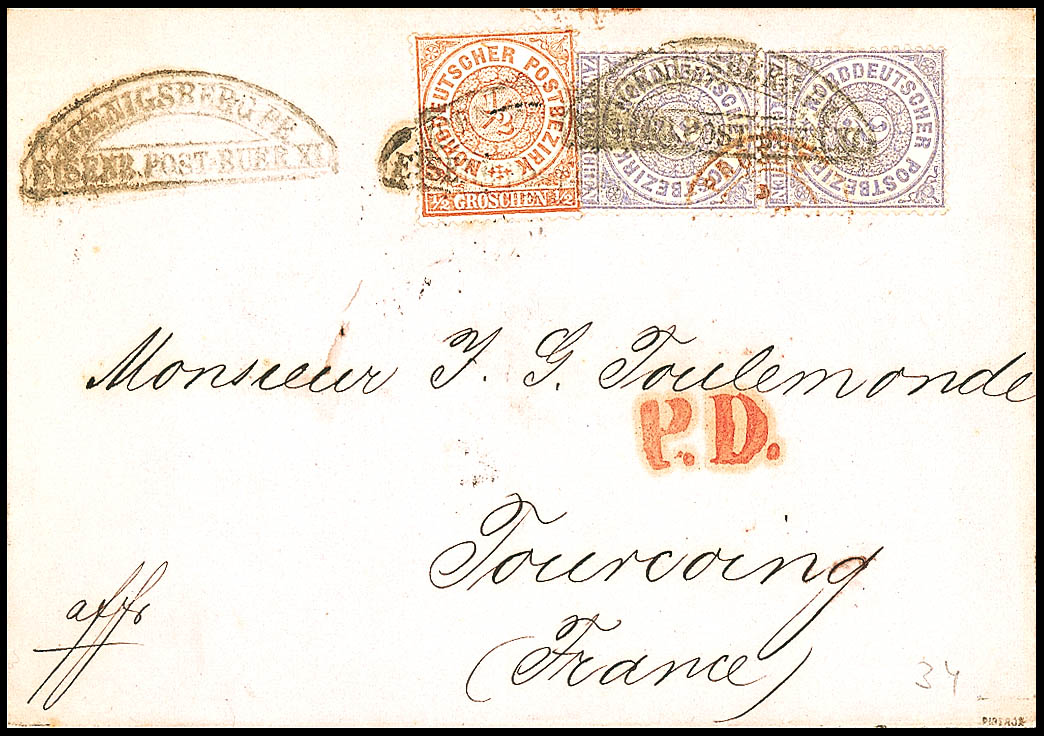 KOENIGSBERG PR.
EISENB. POST-BUER. XI.
NORDDEUTSCHER POSTBEZIRK
1/2
1/2 GROSCHEN 1/2
NORDDEUTSCHER
POSTBEZIRK
NORDDEUTSCHER
POSTBEZIRK
Monsieur J. G. Toulemonde
P.D.
Tourcoing
(France)
affr
34